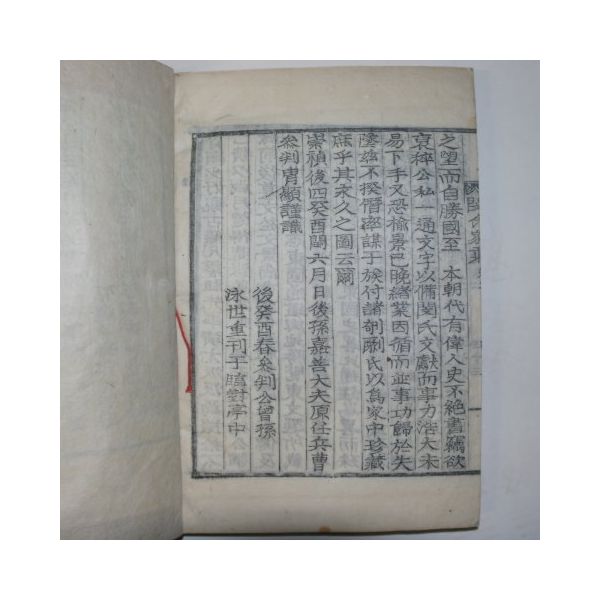 之望而自勝國至 本朝代有偉人史不絕書竊欲
裒稡公私一通文字以備閔氏文獻而事力浩大未
易下手又恐榆景已晩緒業因循而並事功歸於失
墜玆不揆僭率謀于族付諸剞劂氏以爲家中珍藏
庶乎其永久之圖云爾
崇禎後四癸酉閏六月日後孫嘉善大夫原任兵曹
參判胄顯謹識
後癸酉春參判公曾孫
泳世重刊于臨對亭中